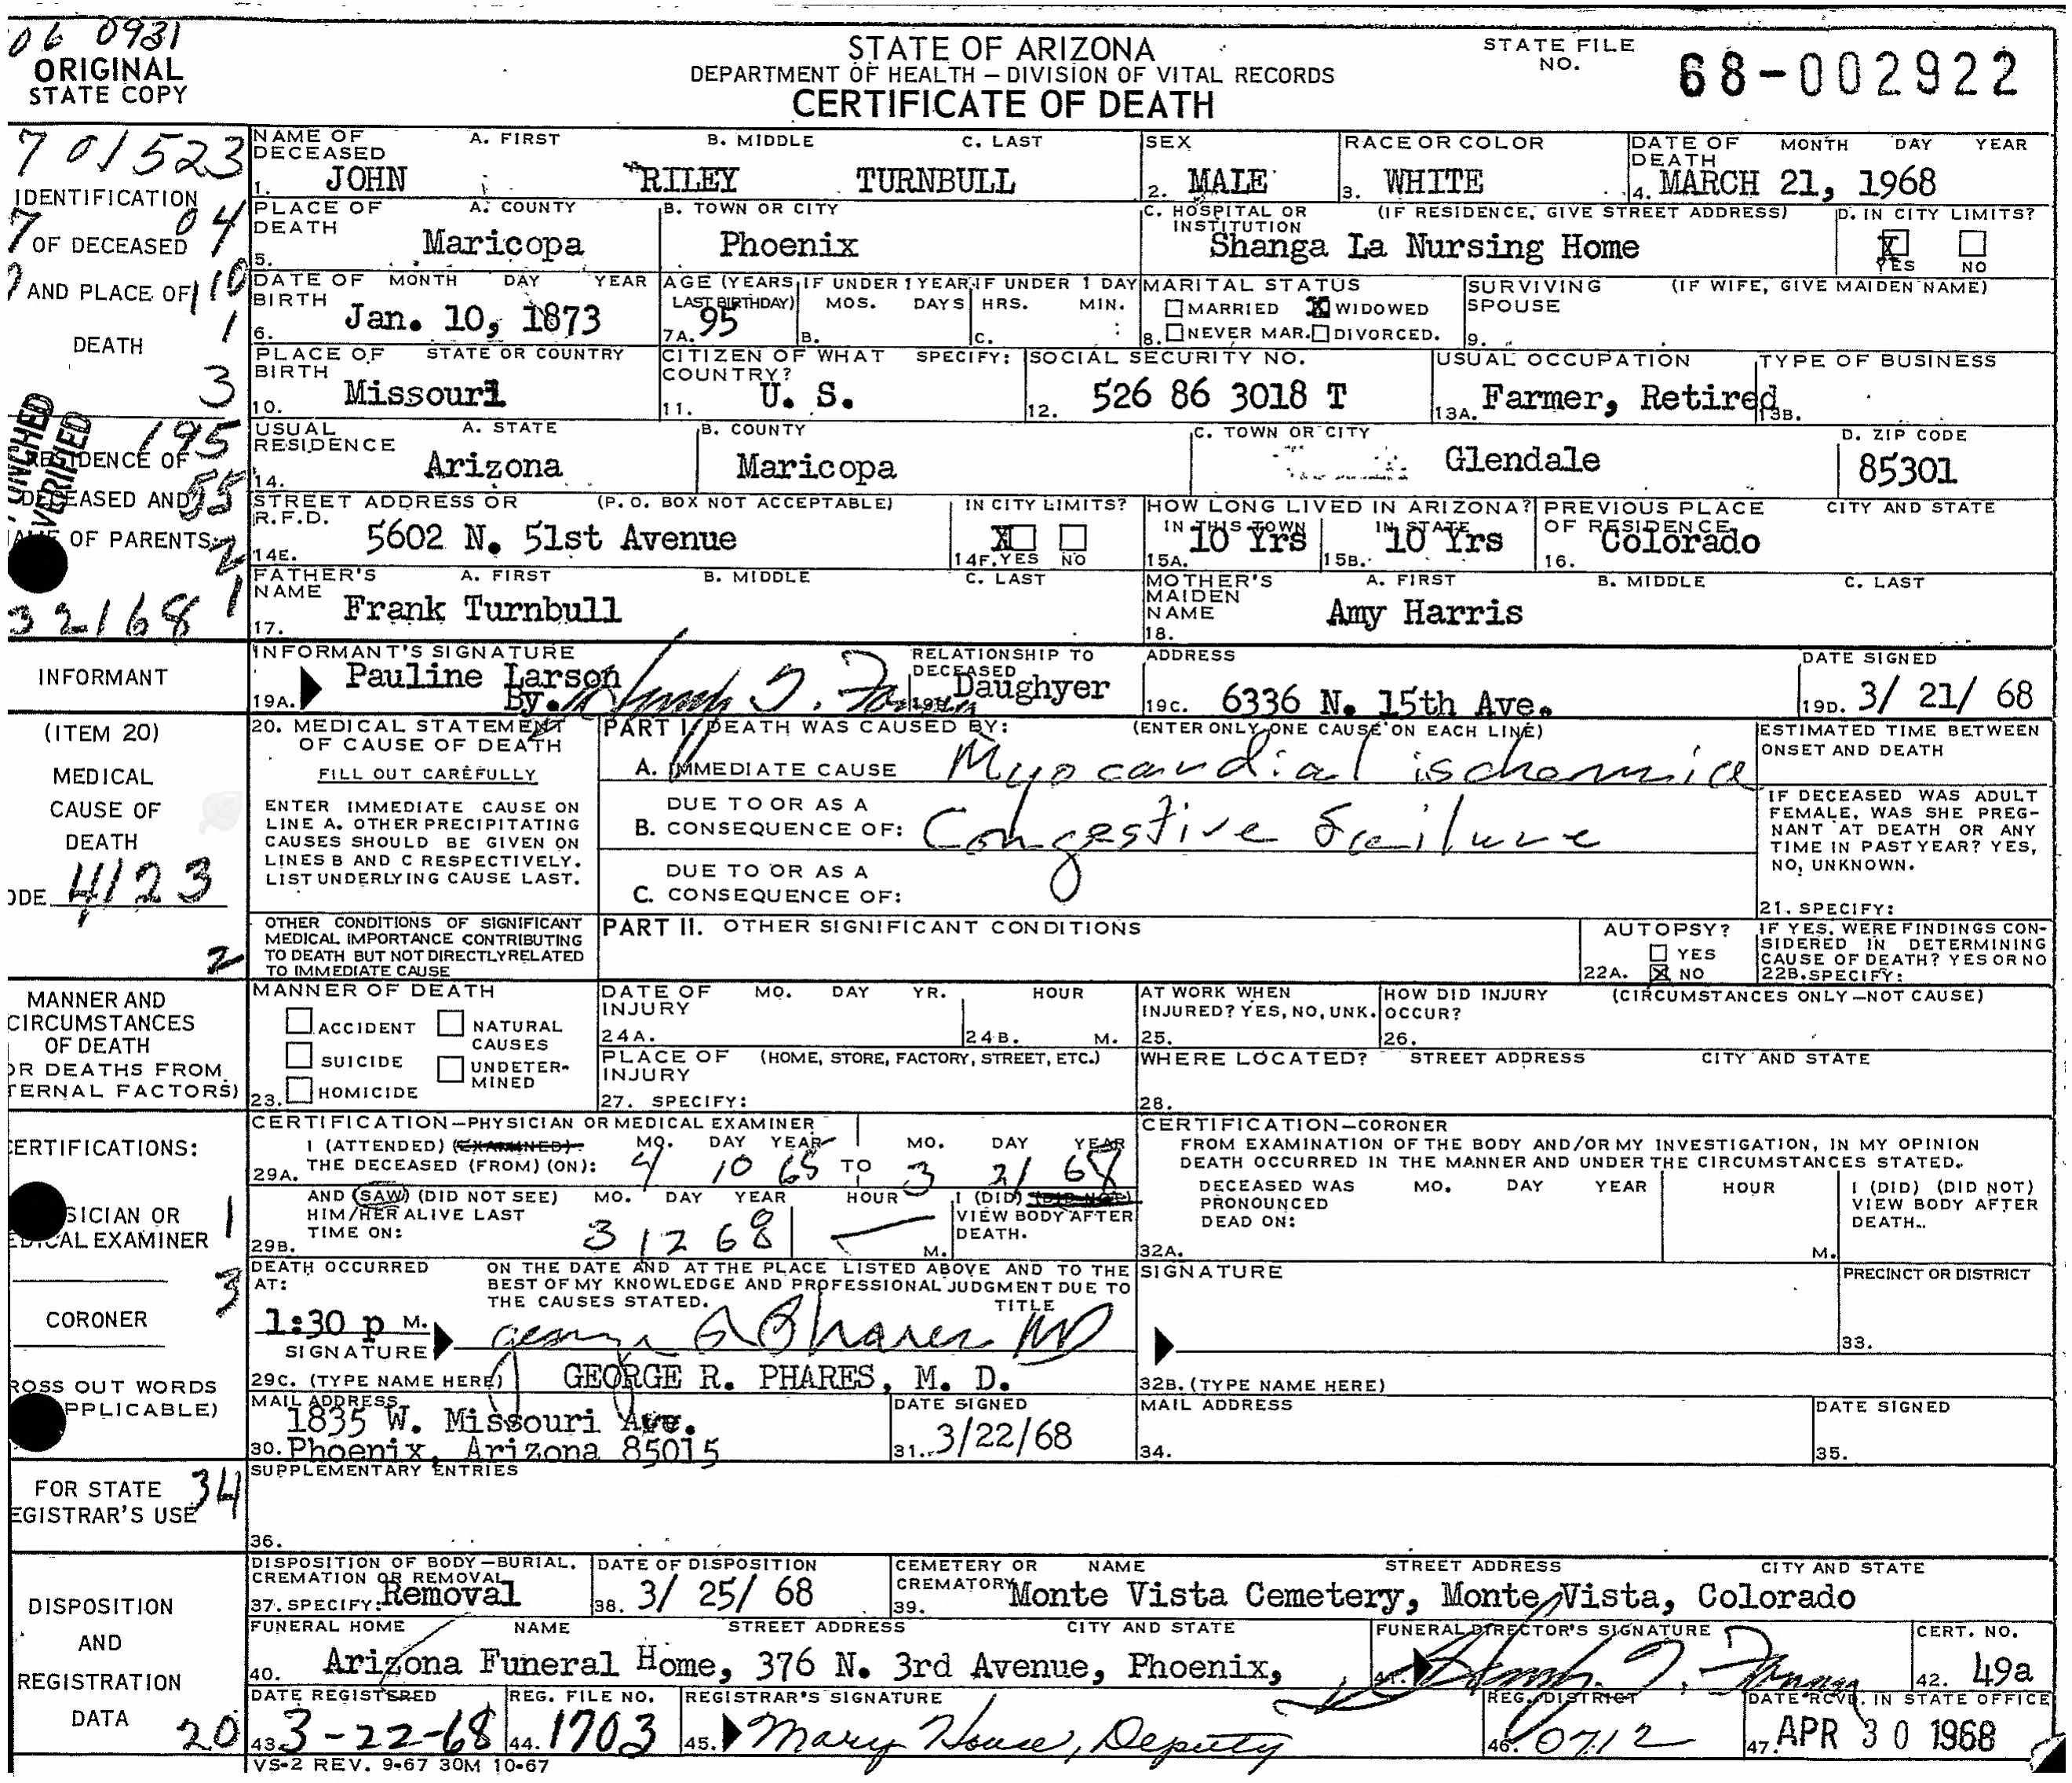 06 0931
ORIGINAL
STATE COPY
STATE OF ARIZONA
DEPARTMENT OF HEALTH – DIVISION OF VITAL RECORDS
CERTIFICATE OF DEATH
STATE FILE NO. 68-002922
701523
IDENTIFICATION
OF DECEASED
AND PLACE OF
DEATH
7 04
110
1
3
NAME OF DECEASED A. FIRST B. MIDDLE C. LAST
1. JOHN RILEY TURNBULL
SEX
2. MALE
RACE OR COLOR
3. WHITE
DATE OF DEATH MONTH DAY YEAR
4. MARCH 21, 1968
PLACE OF DEATH A. COUNTY
5. Maricopa
B. TOWN OR CITY
Phoenix
C. HOSPITAL OR INSTITUTION (IF RESIDENCE, GIVE STREET ADDRESS)
Shanga La Nursing Home
D. IN CITY LIMITS?
X YES NO
DATE OF BIRTH MONTH DAY YEAR
6. Jan. 10, 1873
AGE (YEARS LAST BIRTHDAY)
7A. 95
IF UNDER 1 YEAR MOS. DAYS
B.
IF UNDER 1 DAY HRS. MIN.
C. :
MARITAL STATUS
MARRIED X WIDOWED
8. NEVER MAR. DIVORCED.
SURVIVING SPOUSE (IF WIFE, GIVE MAIDEN NAME)
9.
PLACE OF BIRTH STATE OR COUNTRY
10. Missouri
CITIZEN OF WHAT COUNTRY? SPECIFY:
11. U. S.
SOCIAL SECURITY NO.
12. 526 86 3018 T
USUAL OCCUPATION
13A. Farmer, Retired
TYPE OF BUSINESS
13B.
PUNCHED
VERIFIED
195
55
2
1
RESIDENCE OF
DECEASED AND
NAME OF PARENTS
32168
USUAL RESIDENCE A. STATE
14. Arizona
B. COUNTY
Maricopa
C. TOWN OR CITY
Glendale
D. ZIP CODE
85301
STREET ADDRESS OR R.F.D. (P.O. BOX NOT ACCEPTABLE)
14E. 5602 N. 51st Avenue
IN CITY LIMITS?
X
14F. YES NO
HOW LONG LIVED IN ARIZONA?
IN THIS TOWN
15A. 10 Yrs
IN STATE
15B. 10 Yrs
PREVIOUS PLACE OF RESIDENCE CITY AND STATE
16. Colorado
FATHER'S NAME A. FIRST B. MIDDLE C. LAST
17. Frank Turnbull
MOTHER'S MAIDEN NAME A. FIRST B. MIDDLE C. LAST
18. Amy Harris
INFORMANT
INFORMANT'S SIGNATURE
19A. Pauline Larson
By.
RELATIONSHIP TO DECEASED
19B. Daughyer
ADDRESS
19C. 6336 N. 15th Ave.
DATE SIGNED
19D. 3/ 21/ 68
(ITEM 20)
MEDICAL
CAUSE OF
DEATH
CODE 4123
2
20. MEDICAL STATEMENT
OF CAUSE OF DEATH
FILL OUT CAREFULLY
ENTER IMMEDIATE CAUSE ON
LINE A. OTHER PRECIPITATING
CAUSES SHOULD BE GIVEN ON
LINES B AND C RESPECTIVELY.
LIST UNDERLYING CAUSE LAST.
PART I. DEATH WAS CAUSED BY: (ENTER ONLY ONE CAUSE ON EACH LINE)
A. IMMEDIATE CAUSE Myocardial ischemia
DUE TO OR AS A
B. CONSEQUENCE OF: Congestive failure
DUE TO OR AS A
C. CONSEQUENCE OF:
ESTIMATED TIME BETWEEN
ONSET AND DEATH
IF DECEASED WAS ADULT
FEMALE, WAS SHE PREG-
NANT AT DEATH OR ANY
TIME IN PAST YEAR? YES,
NO, UNKNOWN.
21. SPECIFY:
OTHER CONDITIONS OF SIGNIFICANT
MEDICAL IMPORTANCE CONTRIBUTING
TO DEATH BUT NOT DIRECTLY RELATED
TO IMMEDIATE CAUSE
PART II. OTHER SIGNIFICANT CONDITIONS
AUTOPSY?
YES
22A. X NO
IF YES, WERE FINDINGS CON-
SIDERED IN DETERMINING
CAUSE OF DEATH? YES OR NO
22B. SPECIFY:
MANNER AND
CIRCUMSTANCES
OF DEATH
OR DEATHS FROM
TERNAL FACTORS)
MANNER OF DEATH
ACCIDENT NATURAL CAUSES
SUICIDE UNDETER-MINED
23. HOMICIDE
DATE OF INJURY MO. DAY YR. HOUR
24A. 24B. M.
AT WORK WHEN
INJURED? YES, NO, UNK.
25.
HOW DID INJURY OCCUR? (CIRCUMSTANCES ONLY – NOT CAUSE)
26.
PLACE OF INJURY (HOME, STORE, FACTORY, STREET, ETC.)
27. SPECIFY:
WHERE LOCATED? STREET ADDRESS CITY AND STATE
28.
CERTIFICATIONS:
PHYSICIAN OR
MEDICAL EXAMINER
1
3
CORONER
CROSS OUT WORDS
APPLICABLE)
CERTIFICATION – PHYSICIAN OR MEDICAL EXAMINER
I (ATTENDED) (EXAMINED) MO. DAY YEAR MO. DAY YEAR
29A. THE DECEASED (FROM) (ON): 4 10 65 TO 3 21 68
AND (SAW) (DID NOT SEE) MO. DAY YEAR HOUR
HIM/HER ALIVE LAST
TIME ON:
29B. 3 12 68 M.
I (DID) (DID NOT)
VIEW BODY AFTER
DEATH.
DEATH OCCURRED AT:
1:30 p M.
ON THE DATE AND AT THE PLACE LISTED ABOVE AND TO THE
BEST OF MY KNOWLEDGE AND PROFESSIONAL JUDGMENT DUE TO
THE CAUSES STATED. TITLE
SIGNATURE George R Phares MD
29C. (TYPE NAME HERE) GEORGE R. PHARES, M. D.
MAIL ADDRESS
1835 W. Missouri Ave.
30. Phoenix, Arizona 85015
DATE SIGNED
31. 3/22/68
CERTIFICATION – CORONER
FROM EXAMINATION OF THE BODY AND/OR MY INVESTIGATION, IN MY OPINION
DEATH OCCURRED IN THE MANNER AND UNDER THE CIRCUMSTANCES STATED.
DECEASED WAS PRONOUNCED DEAD ON: MO. DAY YEAR HOUR
32A. M.
I (DID) (DID NOT)
VIEW BODY AFTER
DEATH.
SIGNATURE
PRECINCT OR DISTRICT
33.
32B. (TYPE NAME HERE)
MAIL ADDRESS
34.
DATE SIGNED
35.
FOR STATE
REGISTRAR'S USE
34
SUPPLEMENTARY ENTRIES
36.
DISPOSITION
AND
REGISTRATION
DATA
20
DISPOSITION OF BODY – BURIAL,
CREMATION OR REMOVAL
37. SPECIFY: Removal
DATE OF DISPOSITION
38. 3/ 25/ 68
CEMETERY OR CREMATORY NAME STREET ADDRESS CITY AND STATE
39. Monte Vista Cemetery, Monte Vista, Colorado
FUNERAL HOME NAME STREET ADDRESS CITY AND STATE
40. Arizona Funeral Home, 376 N. 3rd Avenue, Phoenix,
FUNERAL DIRECTOR'S SIGNATURE
41.
CERT. NO.
42. 49a
DATE REGISTERED
43. 3-22-68
REG. FILE NO.
44. 1703
REGISTRAR'S SIGNATURE
45. Mary House, Deputy
REG. DISTRICT
46. 0712
DATE RCVD. IN STATE OFFICE
47. APR 30 1968
VS-2 REV. 9-67 30M 10-67